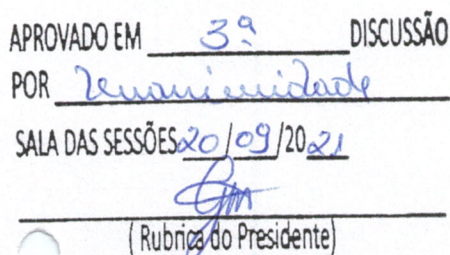 APROVADO EM 3ª DISCUSSÃO
POR Unanimidade
SALA DAS SESSÕES 20/09/2021
(Rubrica do Presidente)